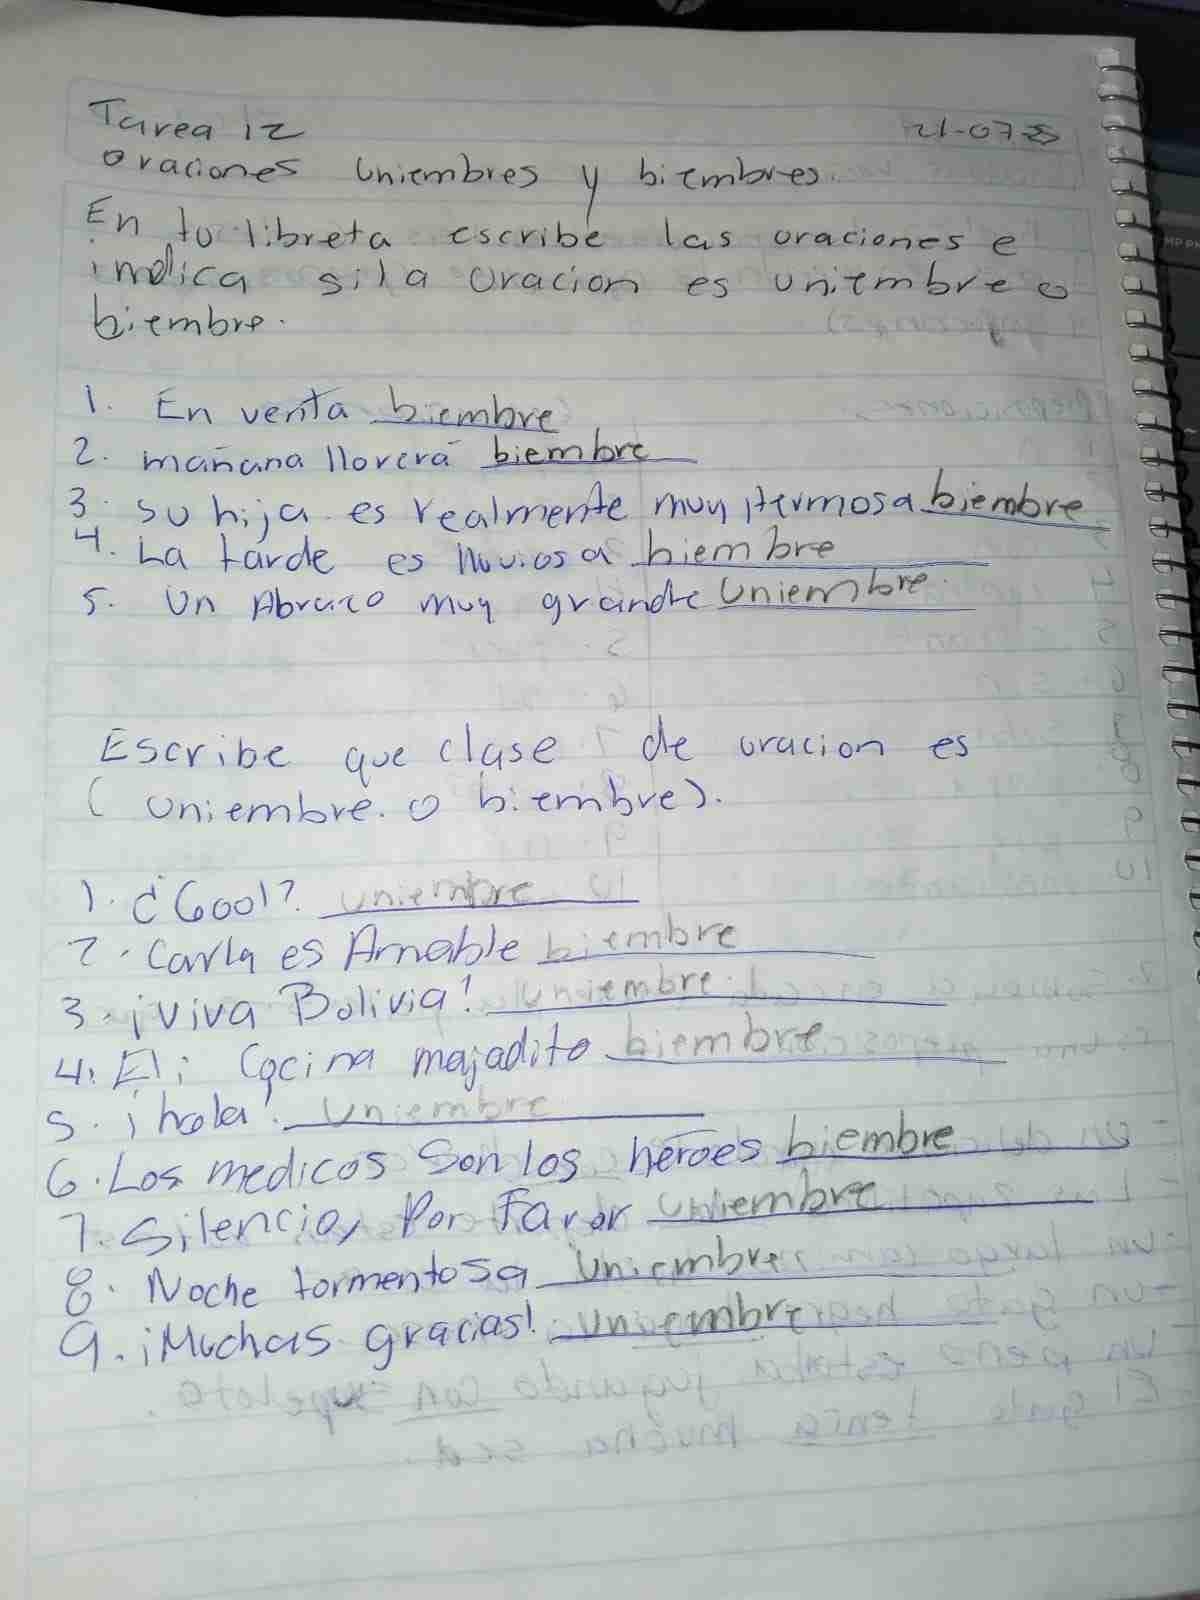 Tarea 12
21-07-25
oraciones Uniembres y biembres
En tu libreta escribe las oraciones e
indica si la oracion es uniembre o
biembre.
1. En venta biembre
2. mañana llorerá biembre
3. Su hija es realmente muy Hermosa biembre
4. La tarde es lluviosa biembre
5. Un Abrazo muy grande Uniembre.
Escribe que clase de oracion es
( Uniembre. o biembre).
1. ¿Gool? uniembre
2. Carla es Amable biembre
3. ¡Viva Bolivia! Uniembre
4. El; Cocina majadito biembre
5. ¡hola! Uniembre
6. Los medicos Son los heroes biembre
7. Silencio, Por Favor Uniembre
8. Noche tormentosa Uniembre
9. ¡Muchas gracias! Uniembre